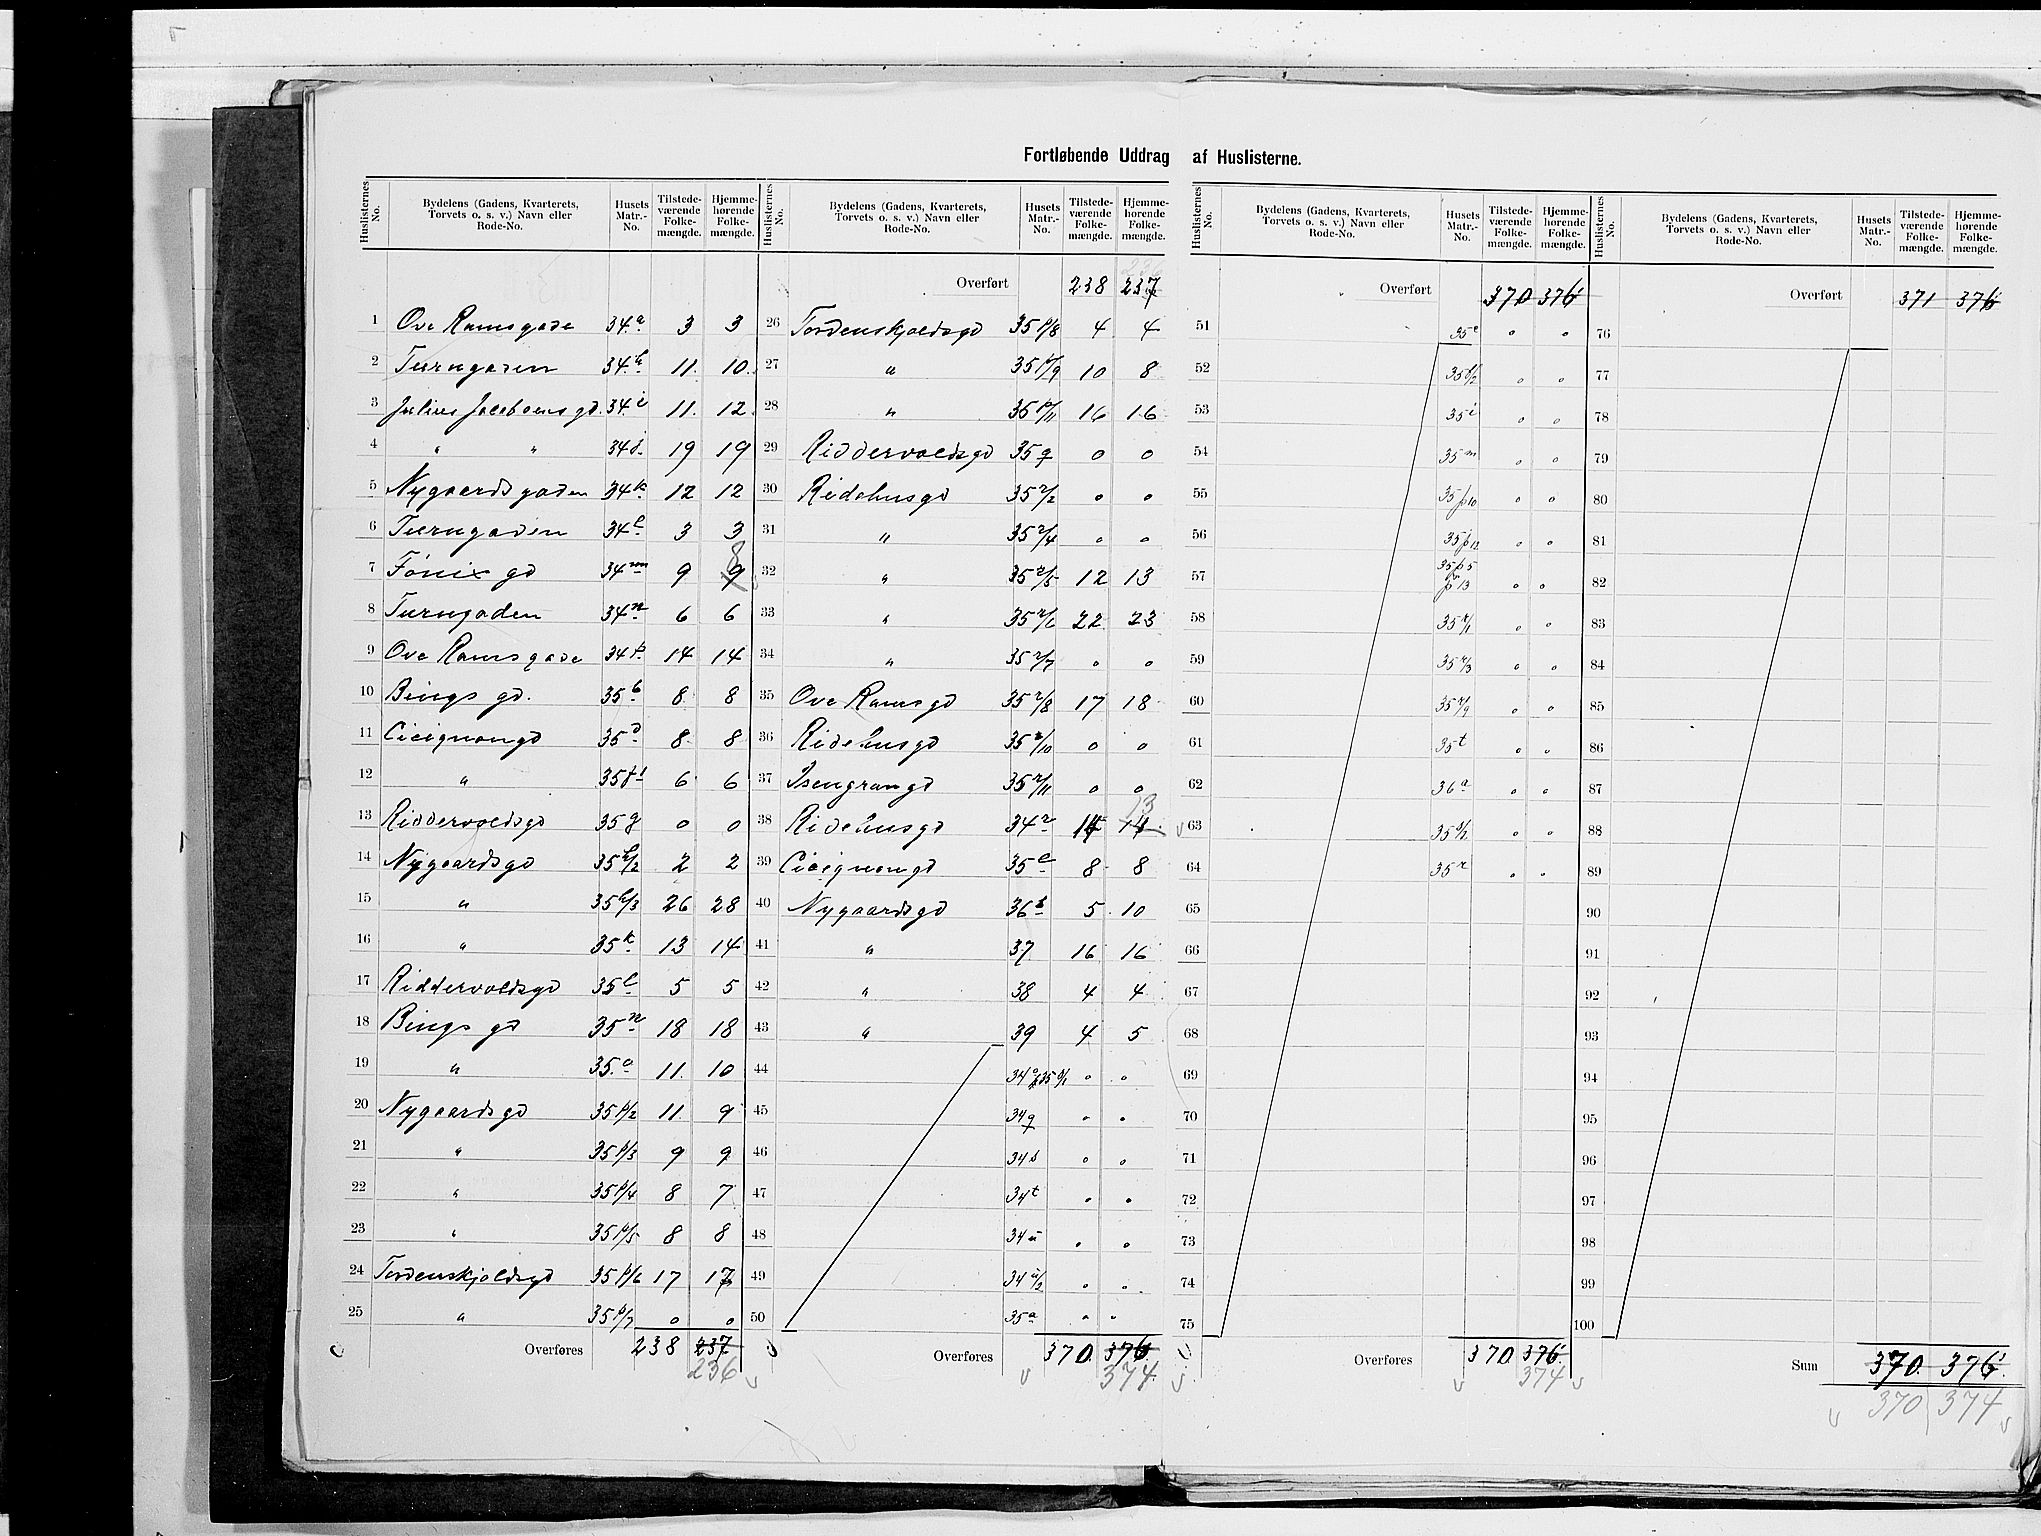 Fortløbende Uddrag af Huslisterne.
Huslisternes No. Bydelens (Gadens, Kvarterets, Torvets o. s. v.) Navn eller Rode-No. Husets Matr.-No. Tilstede-værende Folke-mængde. Hjemme-hørende Folke-mængde.
1 Ove Ramsgade 34 a 3 3
2 Turngaden 34 h 11 10
3 Julius Jacobsens gd. 34 i 11 12
4 " " 34 j 19 19
5 Nygaardsgaden 34 k 12 12
6 Turngaden 34 l 3 3
7 Fønix gd 34 m 9 9 8
8 Turngaden 34 n 6 6
9 Ove Ramsgade 34 p 14 14
10 Bings gd. 35 b 8 8
11 Cicignongd 35 d 8 8
12 " 35 f 1 6 6
13 Riddervoldsgd 35 g 0 0
14 Nygaardsgd 35 h/2 2 2
15 " 35 h/3 26 28
16 " 35 k 13 14
17 Riddervoldsgd 35 l 5 5
18 Bings gd 35 n 18 18
19 " 35 o 11 10
20 Nygaardsgd 35 p/2 11 9
21 " 35 p/3 9 9
22 " 35 p/4 8 7
23 " 35 p/5 8 8
24 Tordenskjoldsgd 35 p/6 17 17
25 " 35 p/7 0 0
Overføres 238 237
236
Huslisternes No. Bydelens (Gadens, Kvarterets, Torvets o. s. v.) Navn eller Rode-No. Husets Matr.-No. Tilstede-værende Folke-mængde. Hjemme-hørende Folke-mængde.
236
Overført 238 237
26 Tordenskjoldsgd 35 p/8 4 4
27 " 35 p/9 10 8
28 " 35 p/11 16 16
29 Riddervoldsgd 35 q 0 0
30 Ridehusgd 35 r/2 0 0
31 " 35 r/4 0 0
32 " 35 r/5 12 13
33 " 35 r/6 22 23
34 " 35 r/7 0 0
35 Ove Ramsgd 35 r/8 17 18
36 Ridehusgd 35 r/10 0 0
37 Isengrangd 35 r/11 0 0
38 Ridehusgd 34 r 14 14 13
39 Cicignongd 35 e 8 8
40 Nygaardsgd 36 b 5 10
41 " 37 16 16
42 " 38 4 4
43 " 39 4 5
44 0 0
45 34 q 0 0
46 34 s 0 0
47 34 t 0 0
48 34 u 0 0
49 34 u/2 0 0
50 35 a 0 0
Overføres 370 376
374
Huslisternes No. Bydelens (Gadens, Kvarterets, Torvets o. s. v.) Navn eller Rode-No. Husets Matr.-No. Tilstede-værende Folke-mængde. Hjemme-hørende Folke-mængde.
Overført 370 376
51 35 c 0 0
52 35 f/2 0 0
53 35 i 0 0
54 35 m 0 0
55 35 p 10 0 0
56 35 p 12 0 0
57 p 13 0 0
58 35 r/1 0 0
59 35 r/3 0 0
60 35 r/9 0 0
61 35 t 0 0
62 36 a 0 0
63 35 s/2 0 0
64 35 r 0 0
65
66
67
68
69
70
71
72
73
74
75
Overføres 370 376
374
Huslisternes No. Bydelens (Gadens, Kvarterets, Torvets o. s. v.) Navn eller Rode-No. Husets Matr.-No. Tilstede-værende Folke-mængde. Hjemme-hørende Folke-mængde.
Overført 371 376
76
77
78
79
80
81
82
83
84
85
86
87
88
89
90
91
92
93
94
95
96
97
98
99
100
Sum 370 376
370 374